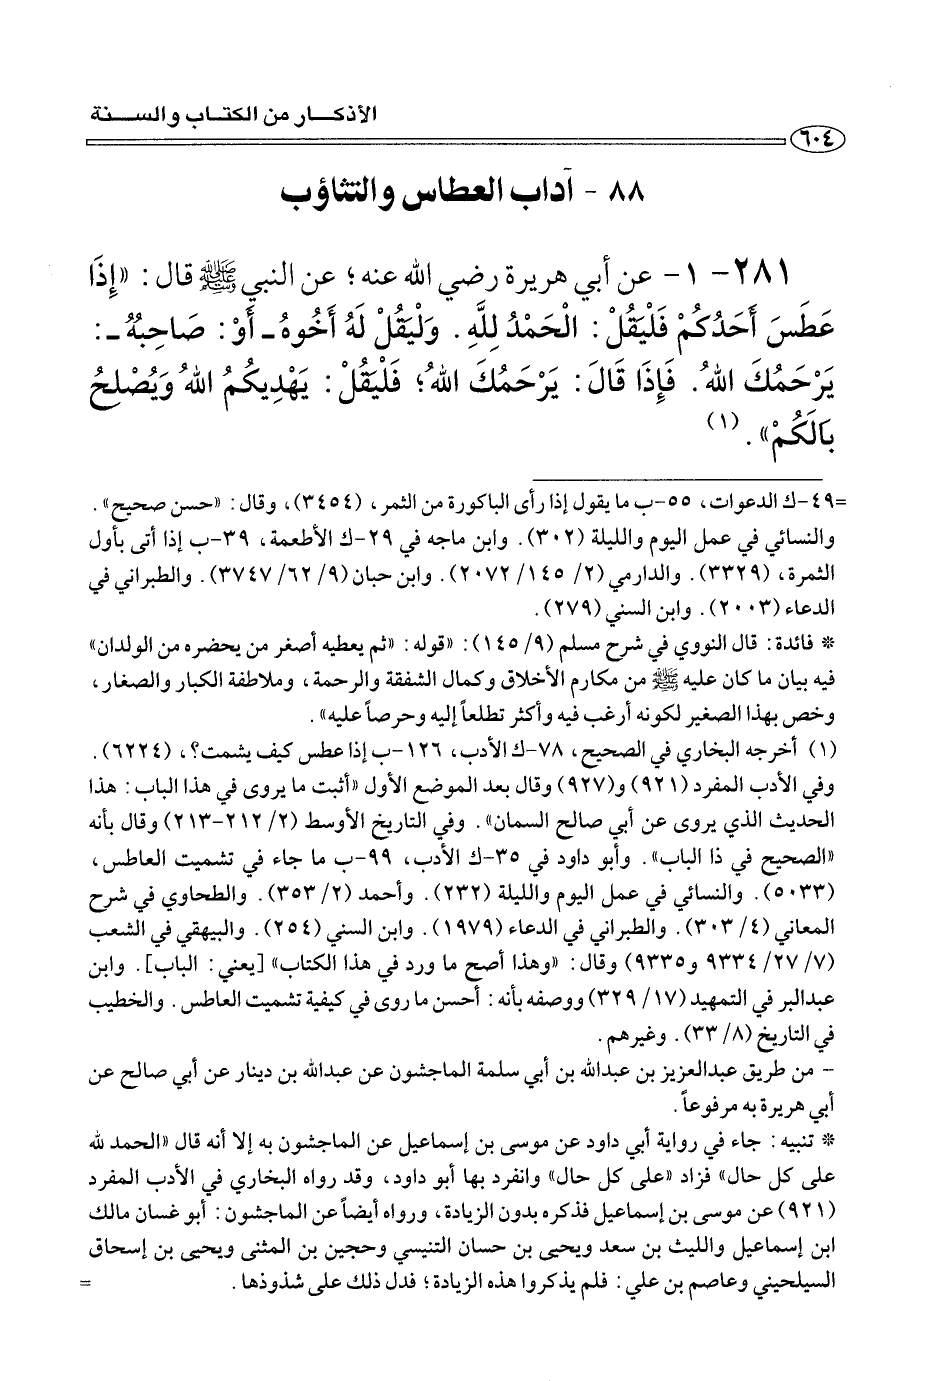 الأذكــار من الكتـاب والســنة
٦٠٤
٨٨ - آداب العطاس والتثاؤب
٢٨١- ١- عن أبي هريرة رضي الله عنه؛ عن النبي ﷺ قال: «إِذَا
عَطَسَ أَحَدُكُمْ فَلْيَقُلْ: الْحَمْدُ لِلَّهِ. وَلْيَقُلْ لَهُ أَخُوهُ ـ أَوْ: صَاحِبُهُ ـ:
يَرْحَمُكَ اللهُ. فَإِذَا قَالَ: يَرْحَمُكَ اللهُ؛ فَلْيَقُلْ: يَهْدِيكُمُ اللهُ وَيُصْلِحُ
بَالَكُمْ».(١)
=٤٩-ك الدعوات، ٥٥-ب ما يقول إذا رأى الباكورة من الثمر، (٣٤٥٤)، وقال: «حسن صحيح».
والنسائي في عمل اليوم والليلة (٣٠٢). وابن ماجه في ٢٩-ك الأطعمة، ٣٩-ب إذا أتى بأول
الثمرة، (٣٣٢٩). والدارمي (٢/ ١٤٥/ ٢٠٧٢). وابن حبان (٩/ ٦٢/ ٣٧٤٧). والطبراني في
الدعاء (٢٠٠٣). وابن السني (٢٧٩).
* فائدة: قال النووي في شرح مسلم (٩/ ١٤٥): «قوله: «ثم يعطيه أصغر من يحضره من الولدان»
فيه بيان ما كان عليه ﷺ من مكارم الأخلاق وكمال الشفقة والرحمة، وملاطفة الكبار والصغار،
وخص بهذا الصغير لكونه أرغب فيه وأكثر تطلعاً إليه وحرصاً عليه».
(١) أخرجه البخاري في الصحيح، ٧٨-ك الأدب، ١٢٦-ب إذا عطس كيف يشمت؟، (٦٢٢٤).
وفي الأدب المفرد (٩٢١) و(٩٢٧) وقال بعد الموضع الأول «أثبت ما يروى في هذا الباب: هذا
الحديث الذي يروى عن أبي صالح السمان». وفي التاريخ الأوسط (٢/ ٢١٢-٢١٣) وقال بأنه
«الصحيح في ذا الباب». وأبو داود في ٣٥-ك الأدب، ٩٩-ب ما جاء في تشميت العاطس،
(٥٠٣٣). والنسائي في عمل اليوم والليلة (٢٣٢). وأحمد (٢/ ٣٥٣). والطحاوي في شرح
المعاني (٤/ ٣٠٣). والطبراني في الدعاء (١٩٧٩). وابن السني (٢٥٤). والبيهقي في الشعب
(٧/ ٢٧/ ٩٣٣٤ و٩٣٣٥) وقال: «وهذا أصح ما ورد في هذا الكتاب» [يعني: الباب]. وابن
عبدالبر في التمهيد (١٧/ ٣٢٩) ووصفه بأنه: أحسن ما روى في كيفية تشميت العاطس. والخطيب
في التاريخ (٨/ ٣٣). وغيرهم.
- من طريق عبدالعزيز بن عبدالله بن أبي سلمة الماجشون عن عبدالله بن دينار عن أبي صالح عن
أبي هريرة به مرفوعاً.
* تنبيه: جاء في رواية أبي داود عن موسى بن إسماعيل عن الماجشون به إلا أنه قال «الحمد لله
على كل حال» فزاد «على كل حال» وانفرد بها أبو داود، وقد رواه البخاري في الأدب المفرد
(٩٢١) عن موسى بن إسماعيل فذكره بدون الزيادة، ورواه أيضاً عن الماجشون: أبو غسان مالك
ابن إسماعيل والليث بن سعد ويحيى بن حسان التنيسي وحجين بن المثنى ويحيى بن إسحاق
السيلحيني وعاصم بن علي: فلم يذكروا هذه الزيادة؛ فدل ذلك على شذوذها. =